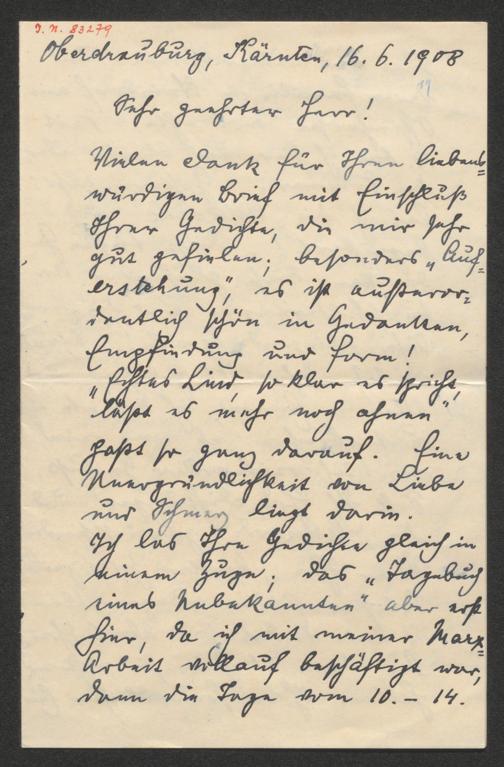 I. N. 83279
Oberdrauburg, Kärnten, 16. 6. 1908
Sehr geehrter Herr!
Vielen Dank für Ihren liebens=
würdigen Brief mit Einschluß
Ihrer Gedichte, die mir sehr
gut gefielen; besonders „Auf=
erstehung", es ist außeror=
dentlich schön in Gedanken,
Empfindung und Form!
„Echtes Lied, so klar es spricht,
läßt es mehr noch ahnen"
paßt so ganz darauf. Eine
Unergründlichkeit von Liebe
und Schmerz liegt darin.
Ich las Ihre Gedichte gleich in
einem Zuge; das „Tagebuch
eines Unbekannten" aber erst
hier, da ich mit meiner Marx=
Arbeit vollauf beschäftigt war,
dann die Tage vom 10. – 14.